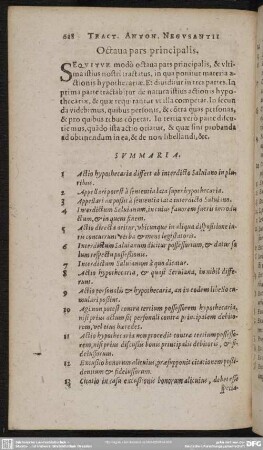 618 TRACT. ANTON. NEGVSANTII
Octaua pars principalis.
SEQVITVR modò octaua pars principalis, & vlti-
ma istius nostri tractatus, in qua ponitur materia a-
ctionis hypothecariæ. Et diuiditur in tres partes. In
prima parte tractabitur de natura istius actionis hypo-
thecariæ, & quæ requirantur vt illa competat. In secun
da videbimus, quibus personis, & côtra quas personas,
& pro quibus rebus côpetat. In tertia verò parte dis-
cutiemus, quâdo ista actio oriatur, & quæ sint probanda
ad obtinendum in ea, & de non libellandi, &c.
SVMMARIA.
1 Actio hypothecaria differt ab interdicto Saluiano in plu-
ribus.
2 Appellari potest à sententia lata super hypothecaria.
3 Appellari non potest à sententia lata interdicto Saluiano.
4 Interdictum Saluianum, in cuius fauorem fuerit introdu
ctum, & in quem
5 Actio directa oritur, vbicunque in aliqua dispositione
contrarium verba
6 Interdictum Saluianum dicitur possessorium, & datur
lum respectu possessionis.
7 Interdictum Saluianum à quo dicatur.
8 Actio hypothecaria, & quasi Seruiana, in nihil diffe-
runt.
9 Actio personalis & hypothecaria, an in eodem libello cu-
mulari possint.
10 Agi non potest contra tertium possessorem hypothecaria,
nisi prius actum sit personali contra principalem debito-
rem, vel eius hæredes.
11 Actio hypothecaria non procedit contra tertium possesso-
rem, nisi prius discussis bonis principalis debitoris, & fi-
deiussorum.
12 Excussio bonorum alicuius, præsupponit citationem posses-
dentium & fideiussorum.
13 Citatio in casu excussionis bonorum alicuius, debet esse